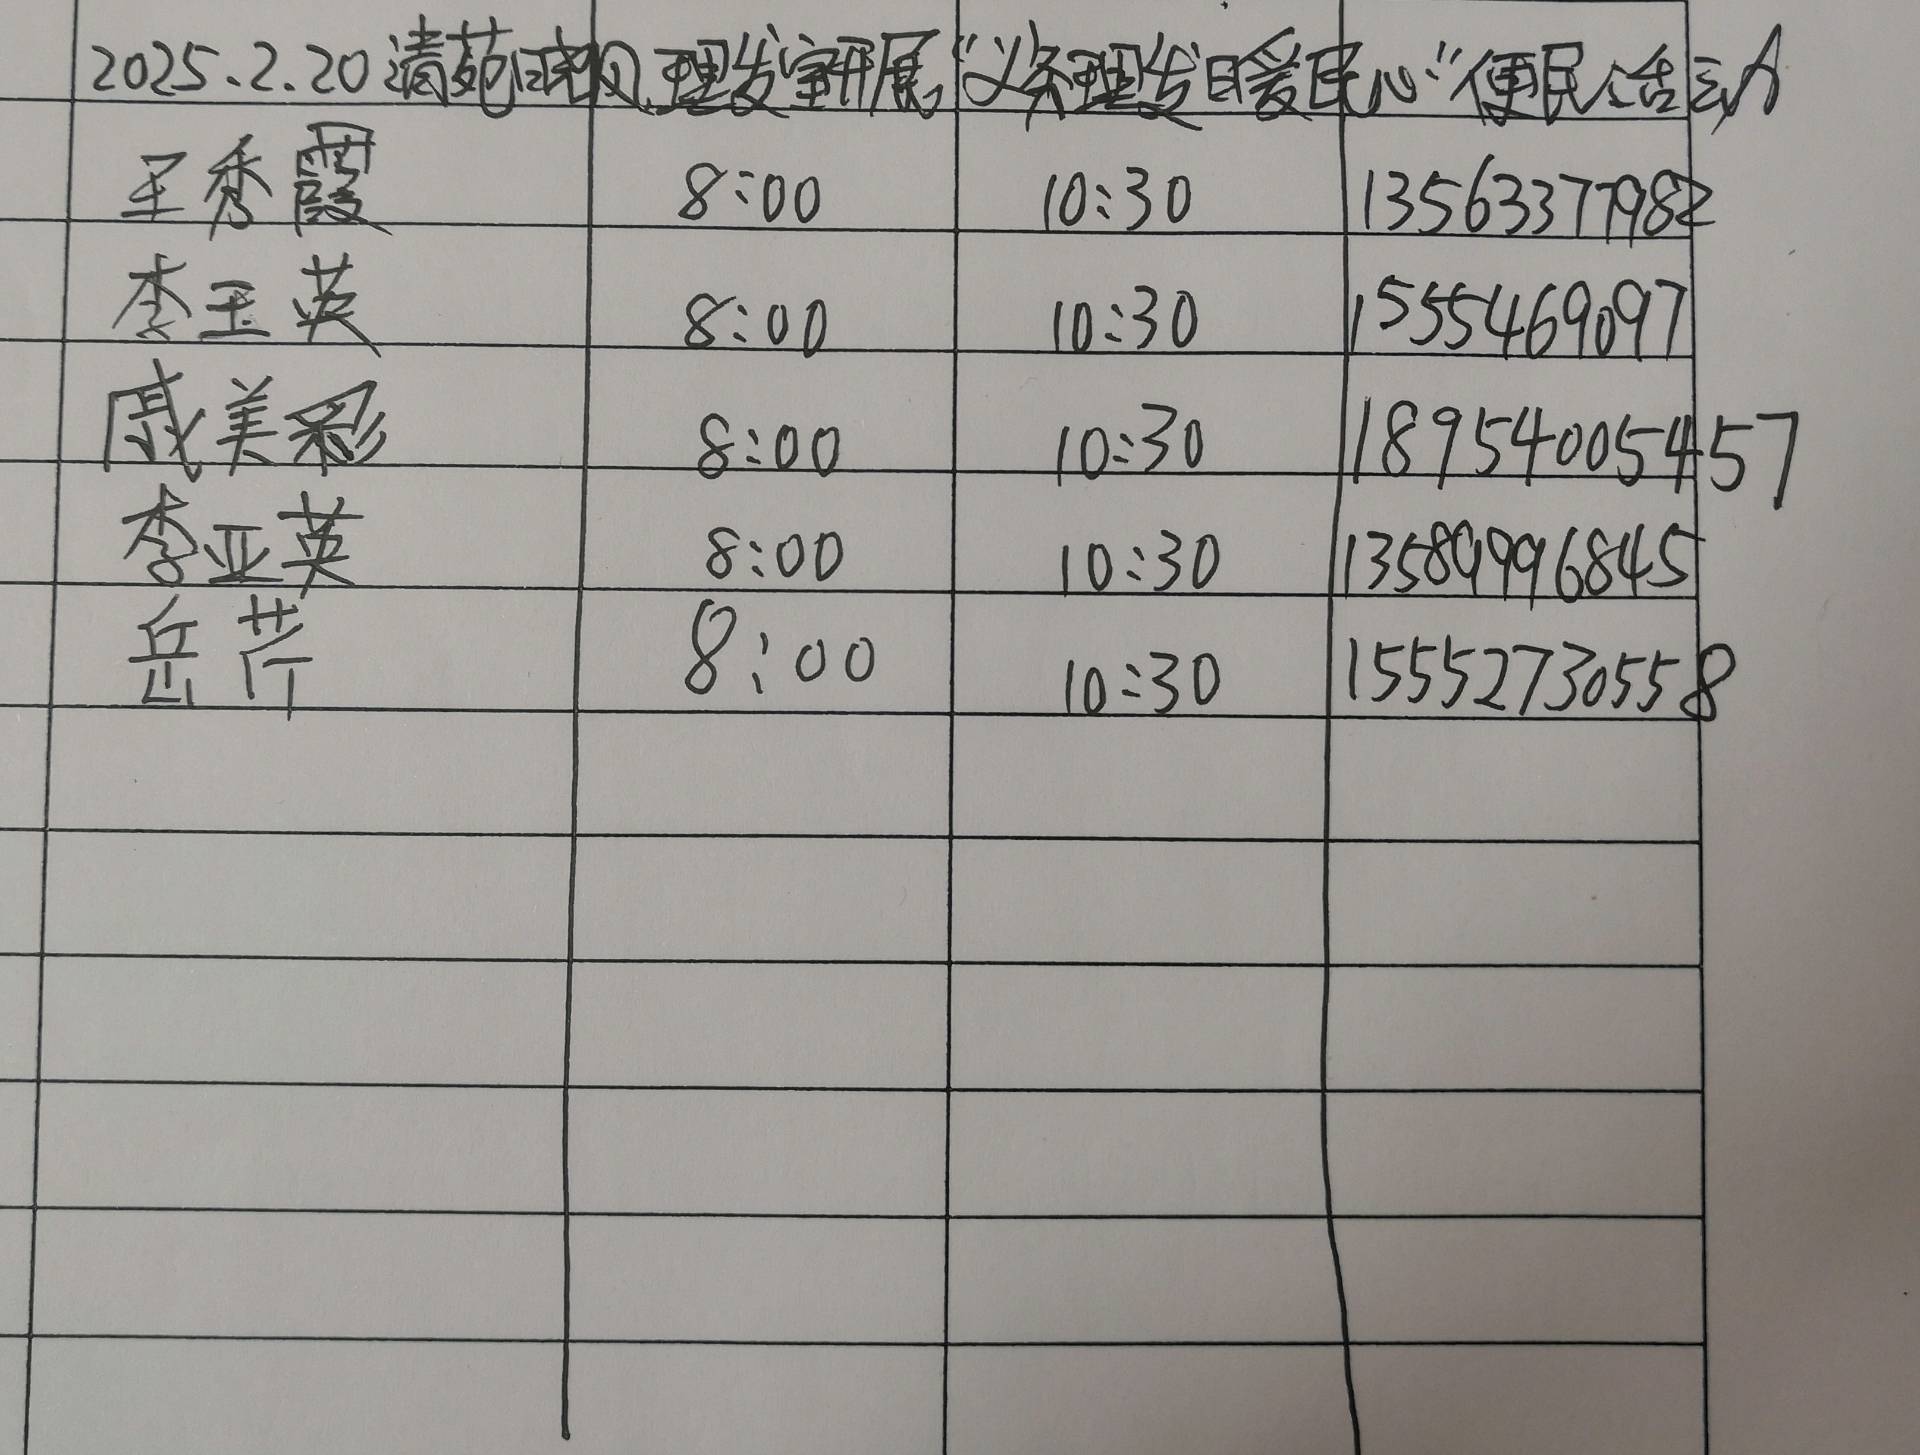 2025.2.20清苑晓风理发室开展“义务理发暖民心”便民活动
王秀霞 8:00 10:30 13563377982
李玉英 8:00 10:30 15554469097
戚美彩 8:00 10:30 18954005457
李亚英 8:00 10:30 13589996845
岳芹 8:00 10:30 15552730558